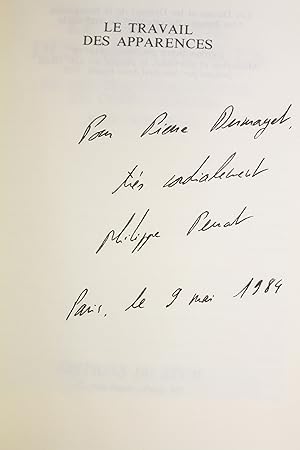 LE TRAVAIL
DES APPARENCES
Pour Pierre Dumayet,
très cordialement
Philippe Perrot
Paris, le 9 mai 1984